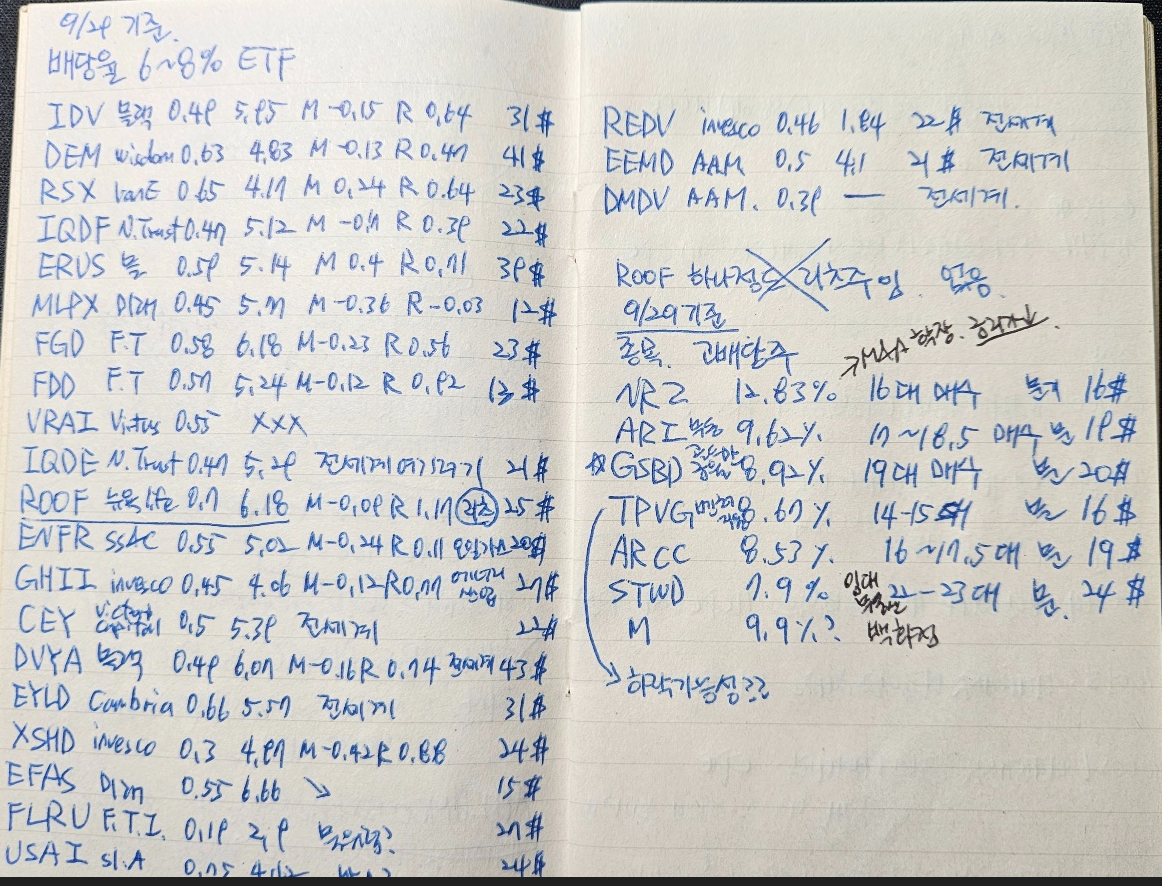 9/29 기준.
배당율 6~8% ETF
IDV 블랙 0.49 5.95 M -0.15 R 0.64 31$
DEM wisdom 0.63 4.83 M -0.13 R 0.47 41$
RSX vanE 0.65 4.17 M 0.24 R 0.64 23$
IQDF N.Trust 0.47 5.12 M R 0.39 22$
ERUS 블 0.59 5.14 M 0.4 R 0.71 39$
MLPX 미래 0.45 5.77 M -0.36 R -0.03 12$
FGD F.T 0.58 6.18 M -0.23 R 0.56 23$
FDD F.T 0.57 5.24 M -0.12 R 0.92 13$
VRAI Virtus 0.55 XXX
IQDE N.Trust 0.47 5.29 전세계여기저기 21$
ROOF 뉴욕life 0.7 6.18 M -0.09 R 1.17 리츠 25$
ENFR SSAC 0.55 5.02 M -0.24 R 0.11 오일가스 20$
GHII invesco 0.45 4.06 M -0.12 R 0.77 에너지 산업 27$
CEY Victory Capital 0.5 5.39 전세계 22$
DVYA 블랙 0.49 6.07 M -0.16 R 0.74 전세계 43$
EYLD Cambria 0.66 5.57 전세계 31$
XSHD invesco 0.3 4.97 M -0.42 R 0.88 24$
EFAS 미래 0.55 6.66 ↘ 15$
FLRU F.T.I. 0.19 2.9 27$
USAI sl.A 0.75 24$
REDV invesco 0.46 1.84 22$ 전세계
EEMD AAM 0.5 4.1 21$ 전세계
DMDV AAM. 0.39 — 전세계.
ROOF 하나정도 리츠주임 없음.
9/29기준
→M&A 확장.
종목. 고배당주
NRZ 12.83% 16대 매수 분기 16$
ARI 부동 9.62% 17~18.5 매수 분 19$
GSBD 골드만 8.92% 19대 매수 분 20$
TPVG 8.67% 14-15대 분 16$
ARCC 8.53% 16~17.5대 분 19$
STWD 7.9% 임대 부동산 22-23대 분. 24$
M 9.9%? 백화점
→하락가능성??